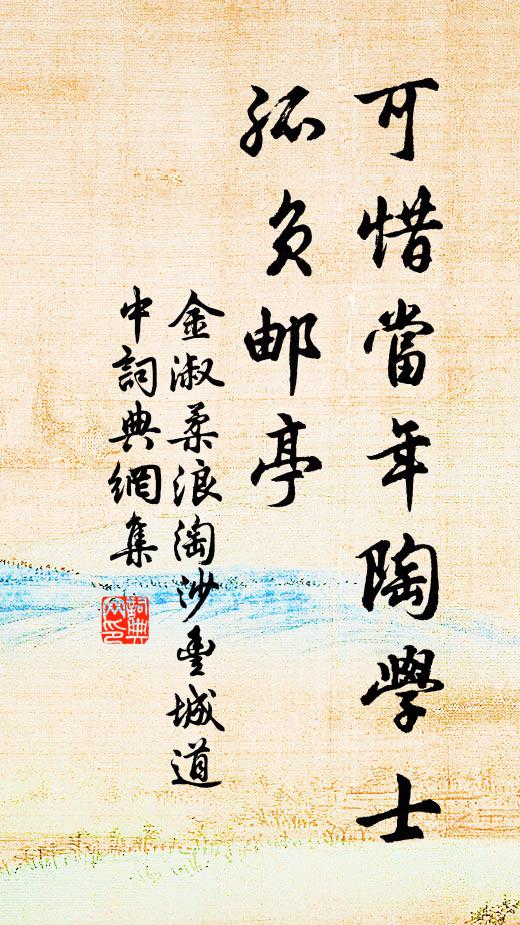 可惜當年陶學士
孤负邮亭
金淑柔浪淘沙豐城道
中詞典網集
詞典